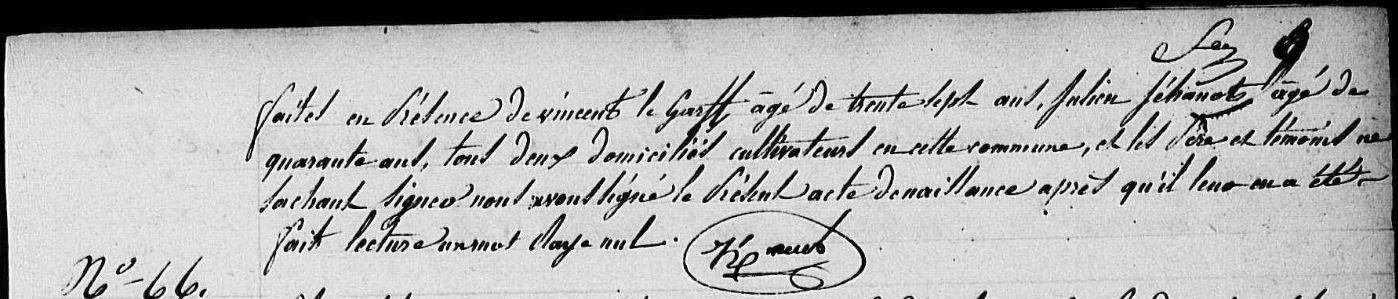 faites en présence de vincent le Garff âgé de trente sept ans, Julien Jéhanot âgé de
quarante ans, tous deux domiciliés cultivateurs en cette commune, et les père et témoins ne
sachant signer nous avons signé le présent acte de naissance après qu'il leur en a été
fait lecture un mot rayé nul.
Nº 66.